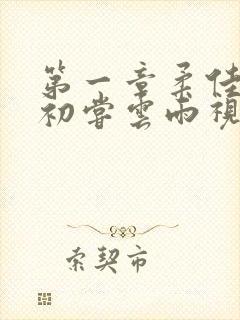 第一章柔佳
初尝云雨视
索契市